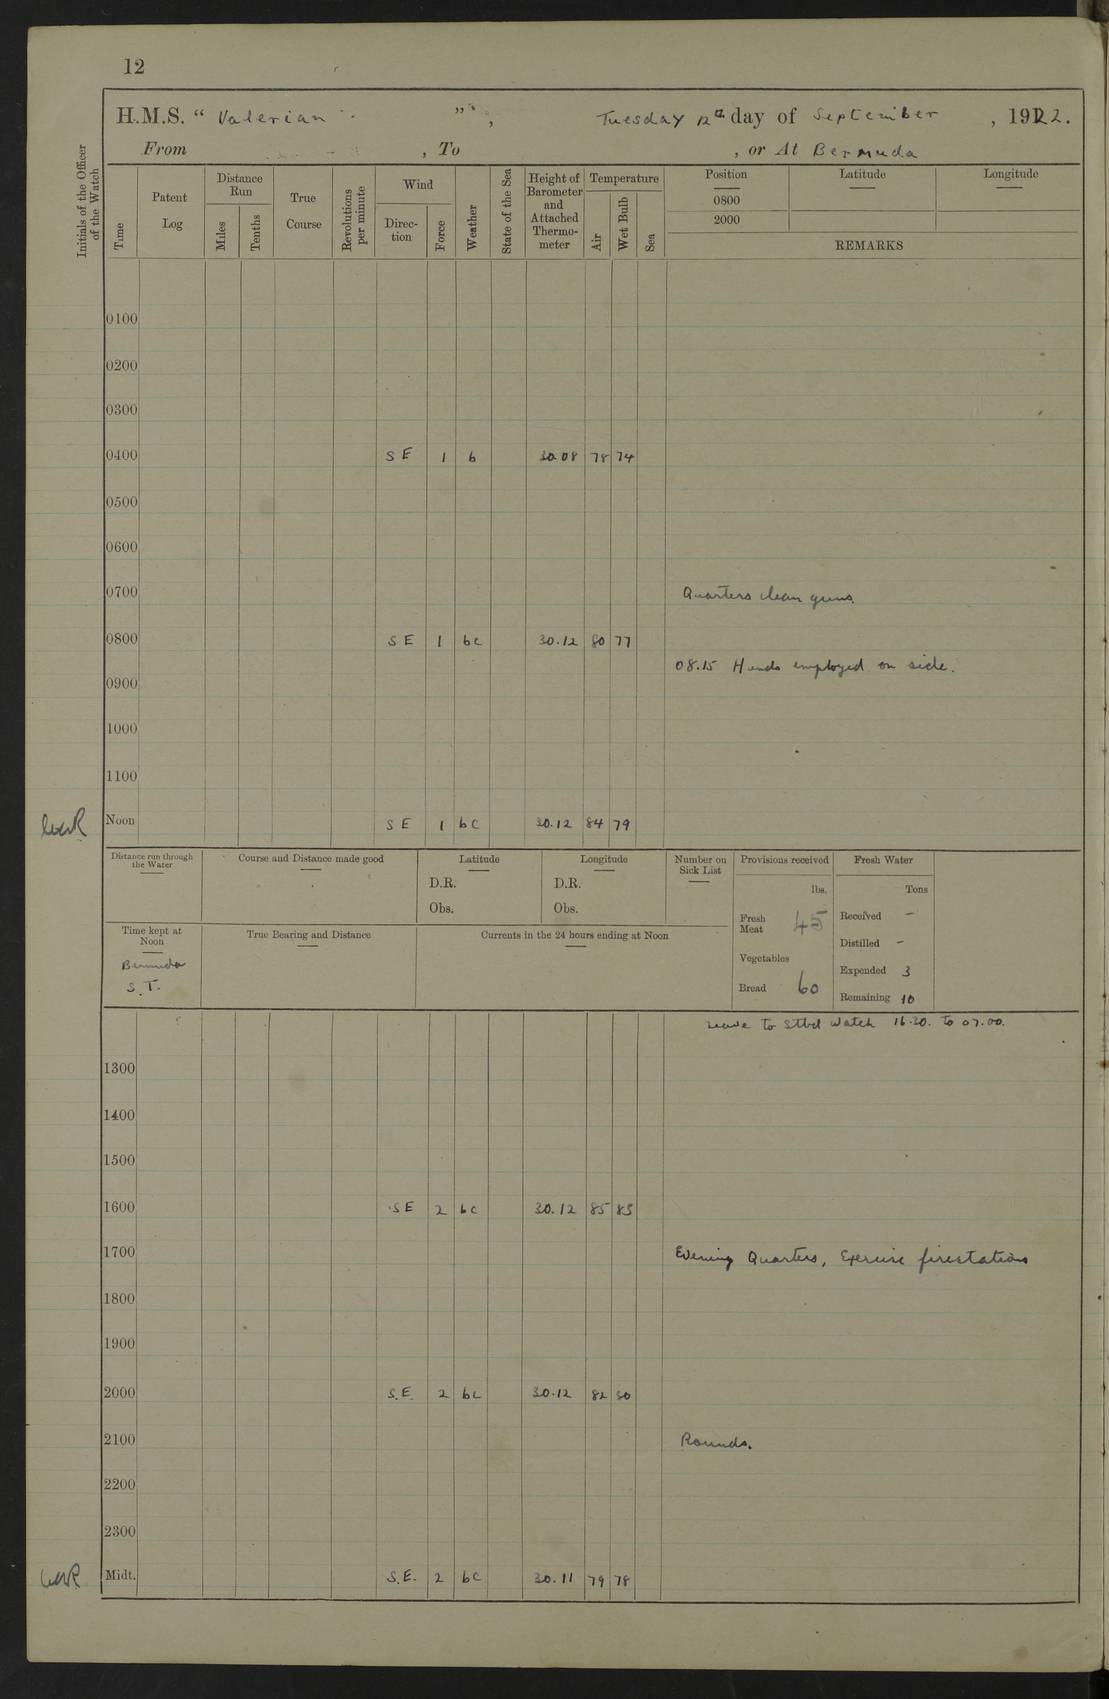 12
H.M.S. “ Valerian ”, Tuesday 12th day of September , 1922.
From , To , or At Bermuda
Initials of the Officer of the Watch
Time
Patent Log
Distance Run
Miles
Tenths
True Course
Revolutions per minute
Wind
Direc-tion
Force
Weather
State of the Sea
Height of Barometer and Attached Thermo-meter
Temperature
Air
Wet Bulb
Sea
Position
0800
2000
Latitude
Longitude
REMARKS
0100
0200
0300
0400 SE 1 b 30.08 78 74
0500
0600
0700 Quarters clean guns.
0800 SE 1 bc 30.12 80 77
08.15 Hands employed on side.
0900
1000
1100
Noon SE 1 bc 30.12 84 79
Distance run through the Water
Course and Distance made good
Latitude
D.R.
Obs.
Longitude
D.R.
Obs.
Number on Sick List
Provisions received
lbs.
Fresh Meat 45
Vegetables
Bread 60
Fresh Water
Tons
Received -
Distilled -
Expended 3
Remaining 10
Time kept at Noon
Bermuda
S.T.
True Bearing and Distance
Currents in the 24 hours ending at Noon
Leave to Stbd Watch 16.30. to 07.00.
1300
1400
1500
1600 SE 2 bc 30.12 85 83
1700 Evening Quarters, Exercise firestations
1800
1900
2000 S.E. 2 bc 30.12 82 80
2100 Rounds.
2200
2300
Midt. S.E. 2 bc 30.11 79 78